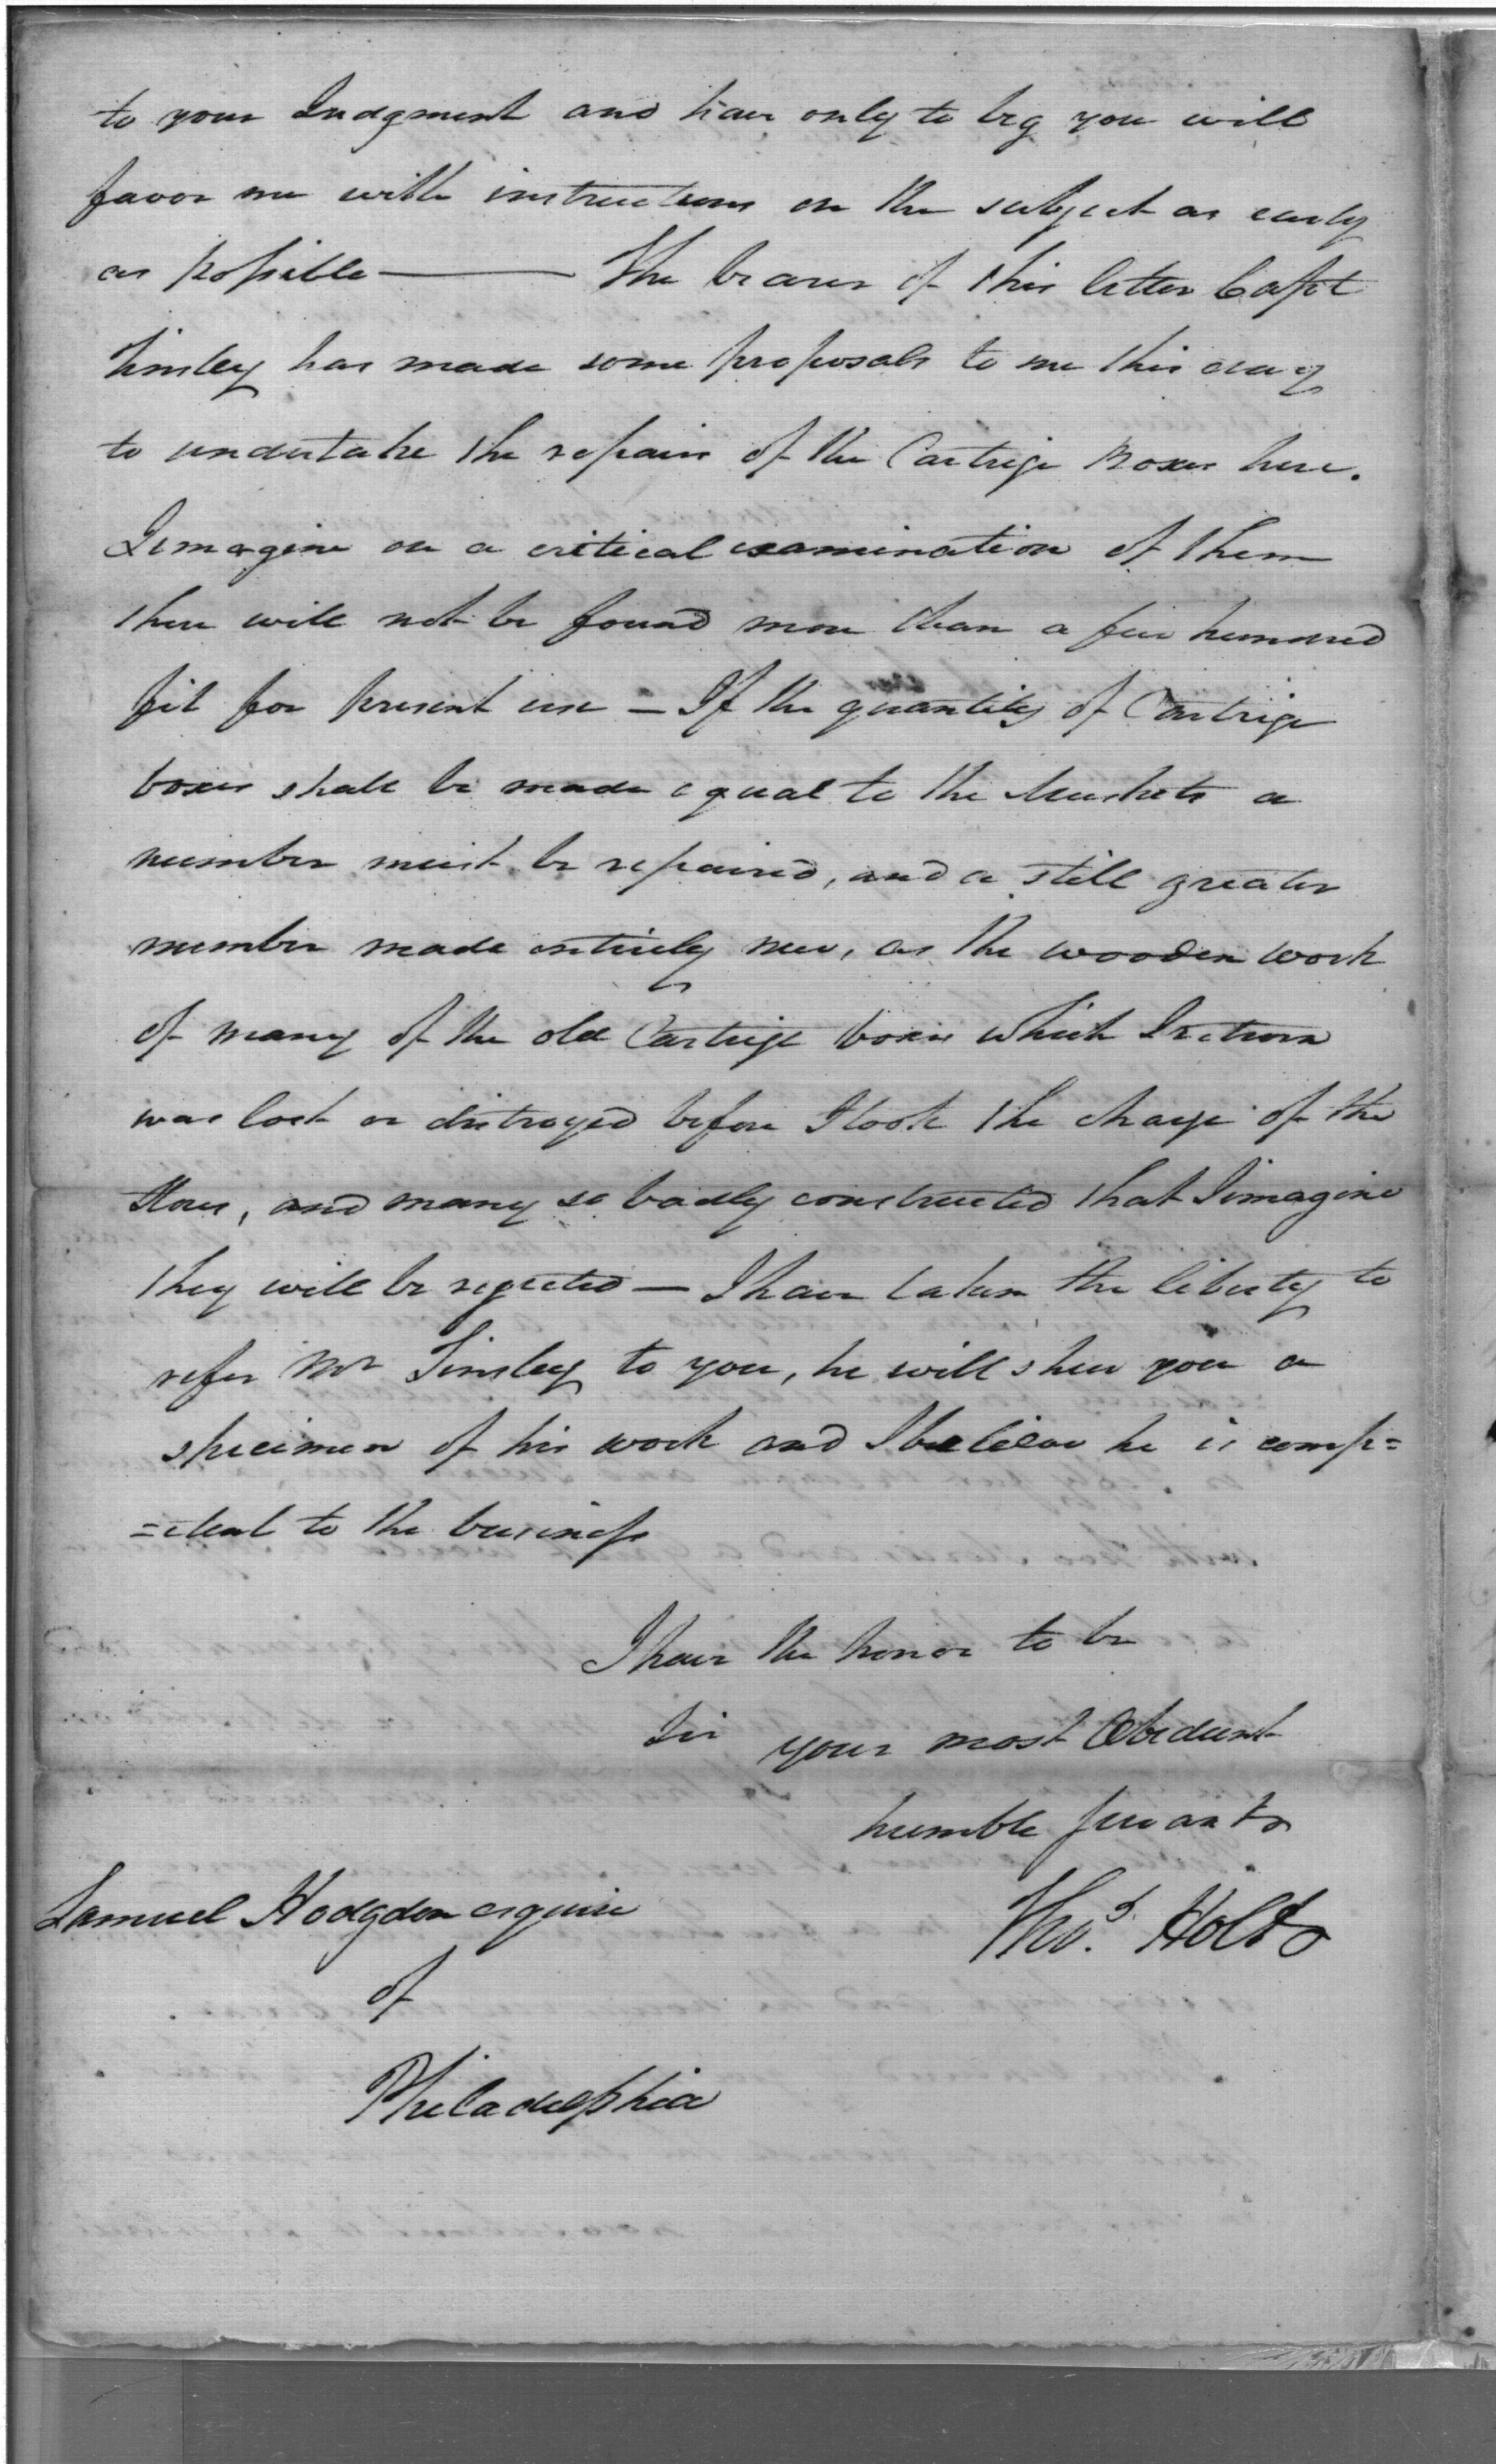 to your Judgment and have only to beg you will
favor me with instructions on the subject as early
as possible — The bearer of this letter Capt
Tinsley has made some proposals to me this day
to undertake the repair of the Cartrige Boxes here.
I imagine on a critical examination of them
there will not be found more than a few hundred
fit for present use – If the quantity of Cartrige
boxes shall be made equal to the Muskets a
number must be repaired, and a still greater
number made entirely new, as the wooden work
of many of the old Cartrige boxes which I return
was lost or distroyed before I took the charge of the
Stores, and many so badly constructed that I imagine
they will be rejected — I have taken the liberty to
refer Mr Tinsley to you, he will shew you a
specimen of his work and I believe he is comp=
=etent to the business
I have the honor to be
Sir your most Obedient
humble servant
Thos. Holt
Samuel Hodgdon esquire
of
Philadelphia